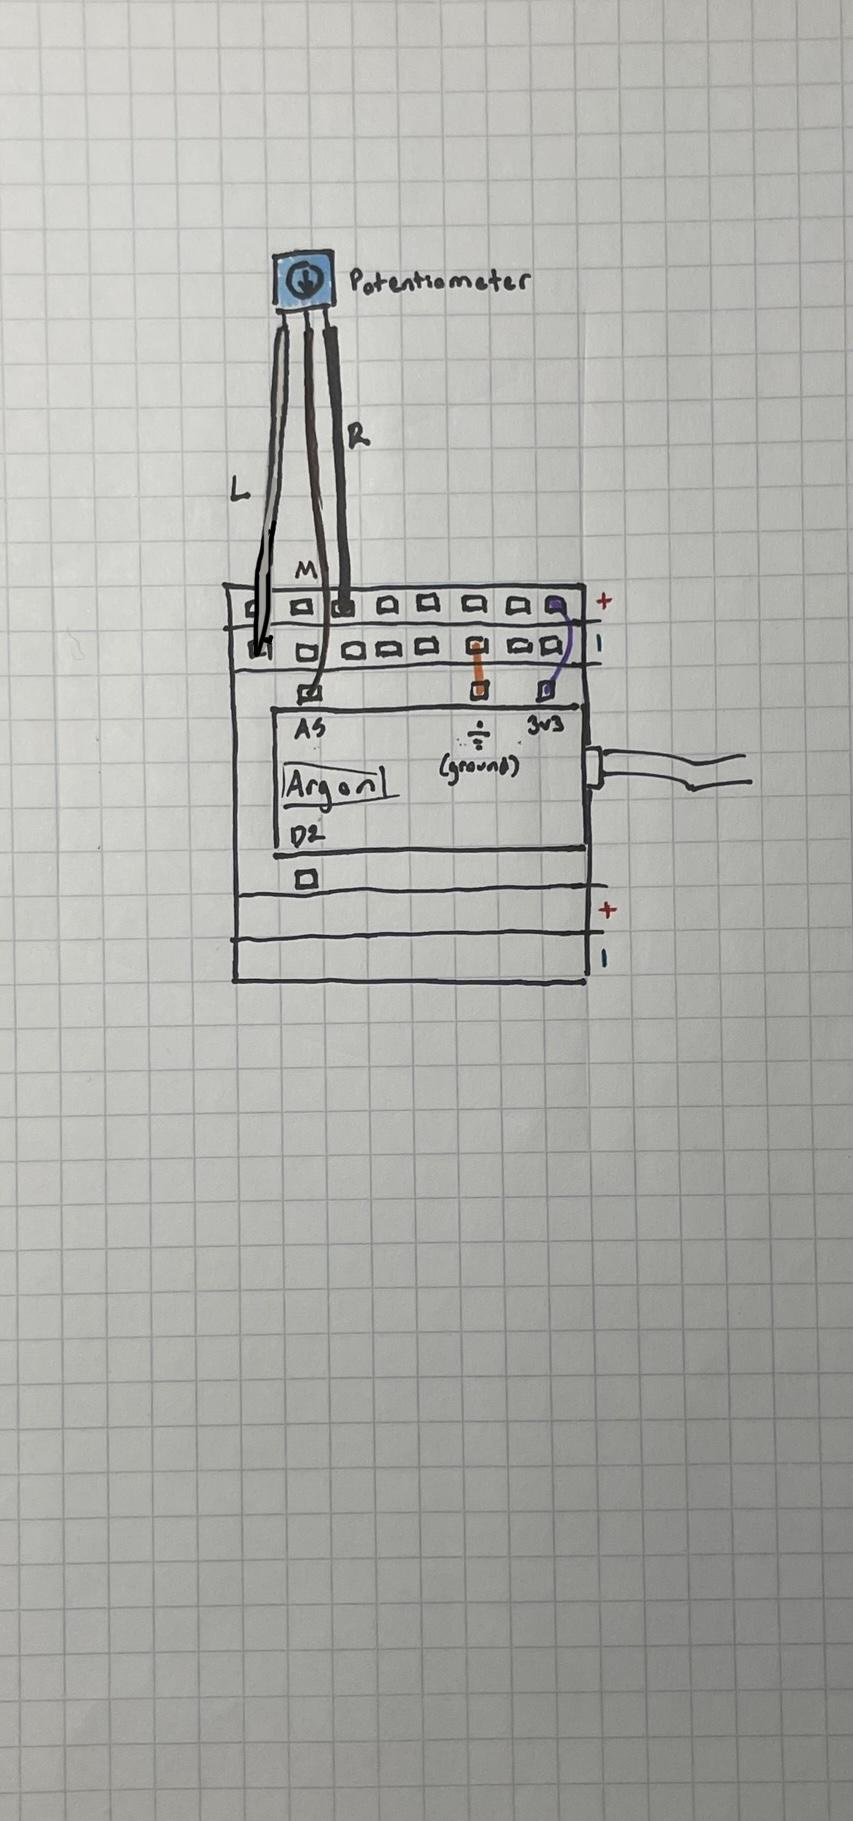 Potentiometer
R
L
M
+
-
A5
3v3
(ground)
Argon
D2
+
-